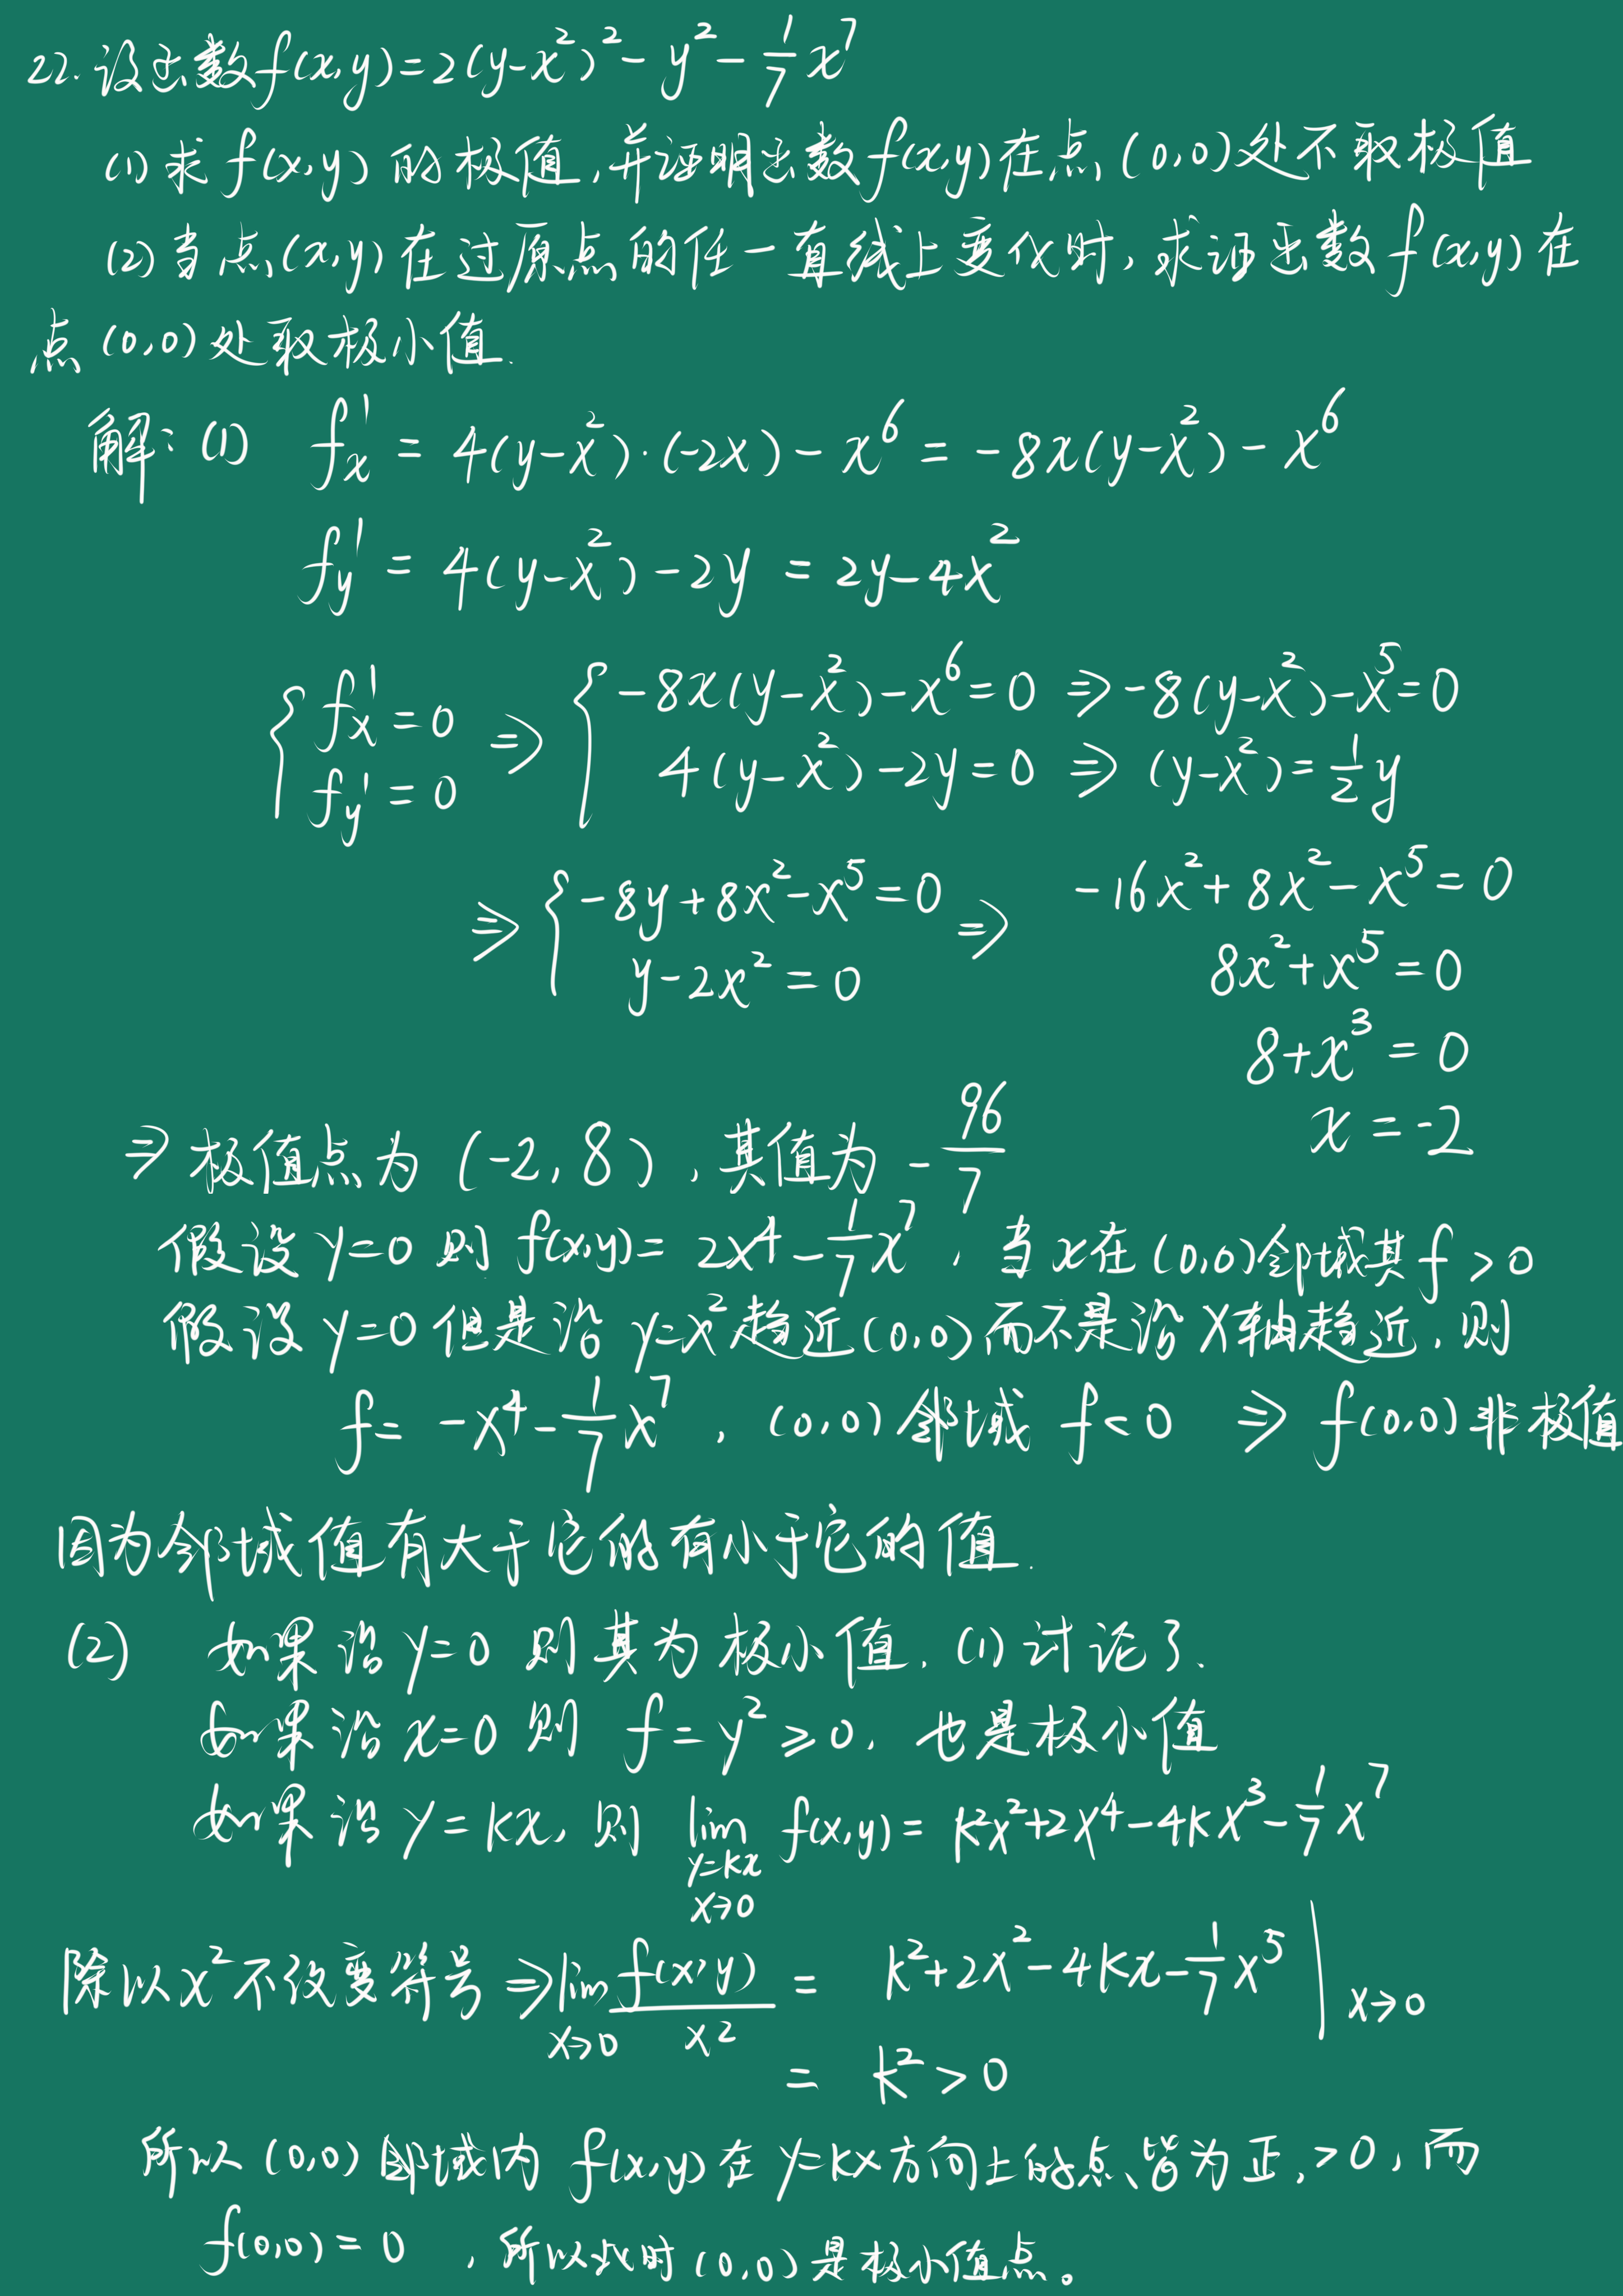 22. 设函数f(x,y)=2(y-x²)²-y²-1/7 x⁷
(1) 求 f(x,y) 的极值,并证明函数f(x,y)在点(0,0)处不取极值
(2) 当点(x,y)在过原点的任一直线上变化时,求证函数f(x,y)在
点(0,0)处取极小值.
解:(1) f'x = 4(y-x²)·(-2x) - x⁶ = -8x(y-x²) - x⁶
f'y = 4(y-x²)-2y = 2y-4x²
{ f'x=0 ⇒ { -8x(y-x²)-x⁶=0 ⇒ -8(y-x²)-x⁵=0
f'y=0 4(y-x²)-2y=0 ⇒ (y-x²)=1/2 y
⇒ { -8y+8x²-x⁵=0 ⇒ -16x²+8x²-x⁵=0
y-2x²=0 8x²+x⁵=0
8+x³=0
x=-2
⇒ 极值点为 (-2,8), 其值为 -96/7
假设 y=0 则 f(x,y)= 2x⁴-1/7 x⁷, 当x在(0,0)邻域其f>0
假设 y=0 但是沿 y=x² 趋近(0,0)而不是沿X轴趋近,则
f= -x⁴-1/7 x⁷, (0,0)邻域 f<0 ⇒ f(0,0)非极值
因为邻域值有大于它的有小于它的值.
(2) 如果沿y=0 则其为极小值. (1)讨论了.
如果沿x=0 则 f=y²≥0, 也是极小值
如果沿y=kx, 则 lim y=kx x→0 f(x,y)= k²x²+2x⁴-4kx³-1/7 x⁷
除以x²不改变符号 ⇒ lim x→0 f(x,y)/x² = k²+2x²-4kx-1/7 x⁵ | x→0
= k²>0
所以(0,0)邻域内 f(x,y)在 y=kx方向上的点皆为正,>0,而
f(0,0)=0 ,所以此时(0,0)是极小值点。